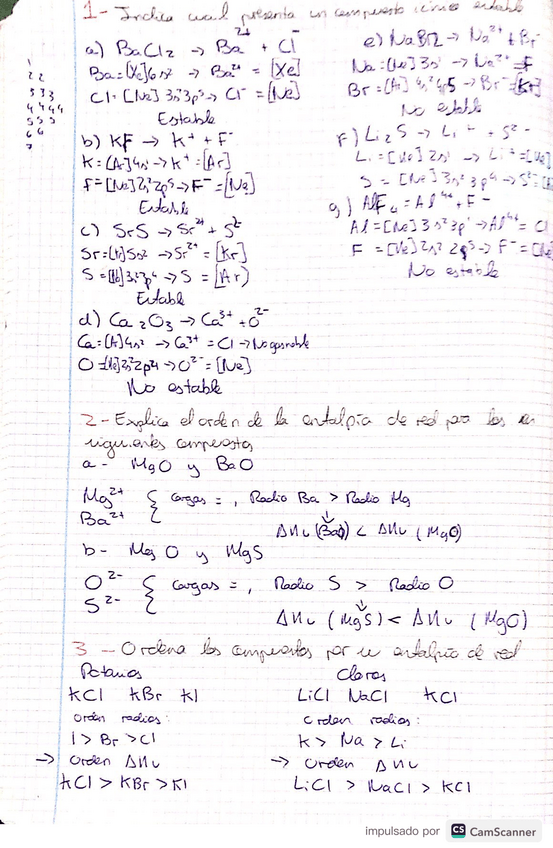 1- Indica cual presenta un compuesto iónico estable
a) BaCl2 → Ba2+ + Cl-
Ba=[Xe]6s2 → Ba2+ = [Xe]
Cl=[Ne]3s23p5 → Cl- = [Ne]
Estable
b) KF → K+ + F-
K=[Ar]4s1 → K+ = [Ar]
F=[Ne]2s22p5 → F- = [Ne]
Estable
c) SrS → Sr2+ + S2-
Sr=[Kr]5s2 → Sr2+ = [Kr]
S=[Ne]3s23p4 → S = [Ar]
Estable
d) Ca2O3 → Ca3+ + O2-
Ca=[Ar]4s2 → Ca3+ = Cl → No posible
O=[He]2s22p4 → O2- = [Ne]
No estable
e) NaBr2 → Na2+ + Br-
Na=[Ne]3s1 → Na2+ = F
Br=[Ar]4s24p5 → Br- = [Kr]
No estable
f) Li2S → Li+ + S2-
Li=[He]2s1 → Li+ = [He]
S=[Ne]3s23p4 → S2-
g) AlF4 = Al4+ + F-
Al=[Ne]3s23p1 → Al4+ = Cl
F=[He]2s22p5 → F- = [Ne
No estable
1
2 2
3 3 3
4 4 4 4
5 5 5
6 6
7
2- Explica el orden de la entalpía de red para los
siguientes compuestos
a- MgO y BaO
Mg2+
Ba2+
{ cargas = , Radio Ba > Radio Mg
↓
ΔHu (BaO) < ΔHu (MgO)
b- MgO y MgS
O2-
S2-
{ cargas = , Radio S > Radio O
↓
ΔHu (MgS) < ΔHu (MgO)
3- Ordena los compuestos por su entalpía de red
Potasios
KCl KBr KI
orden radios:
I > Br > Cl
→ Orden ΔHu
KCl > KBr > KI
Cloros
LiCl NaCl KCl
Orden radios:
K > Na > Li
→ Orden ΔHu
LiCl > NaCl > KCl
impulsado por CS CamScanner